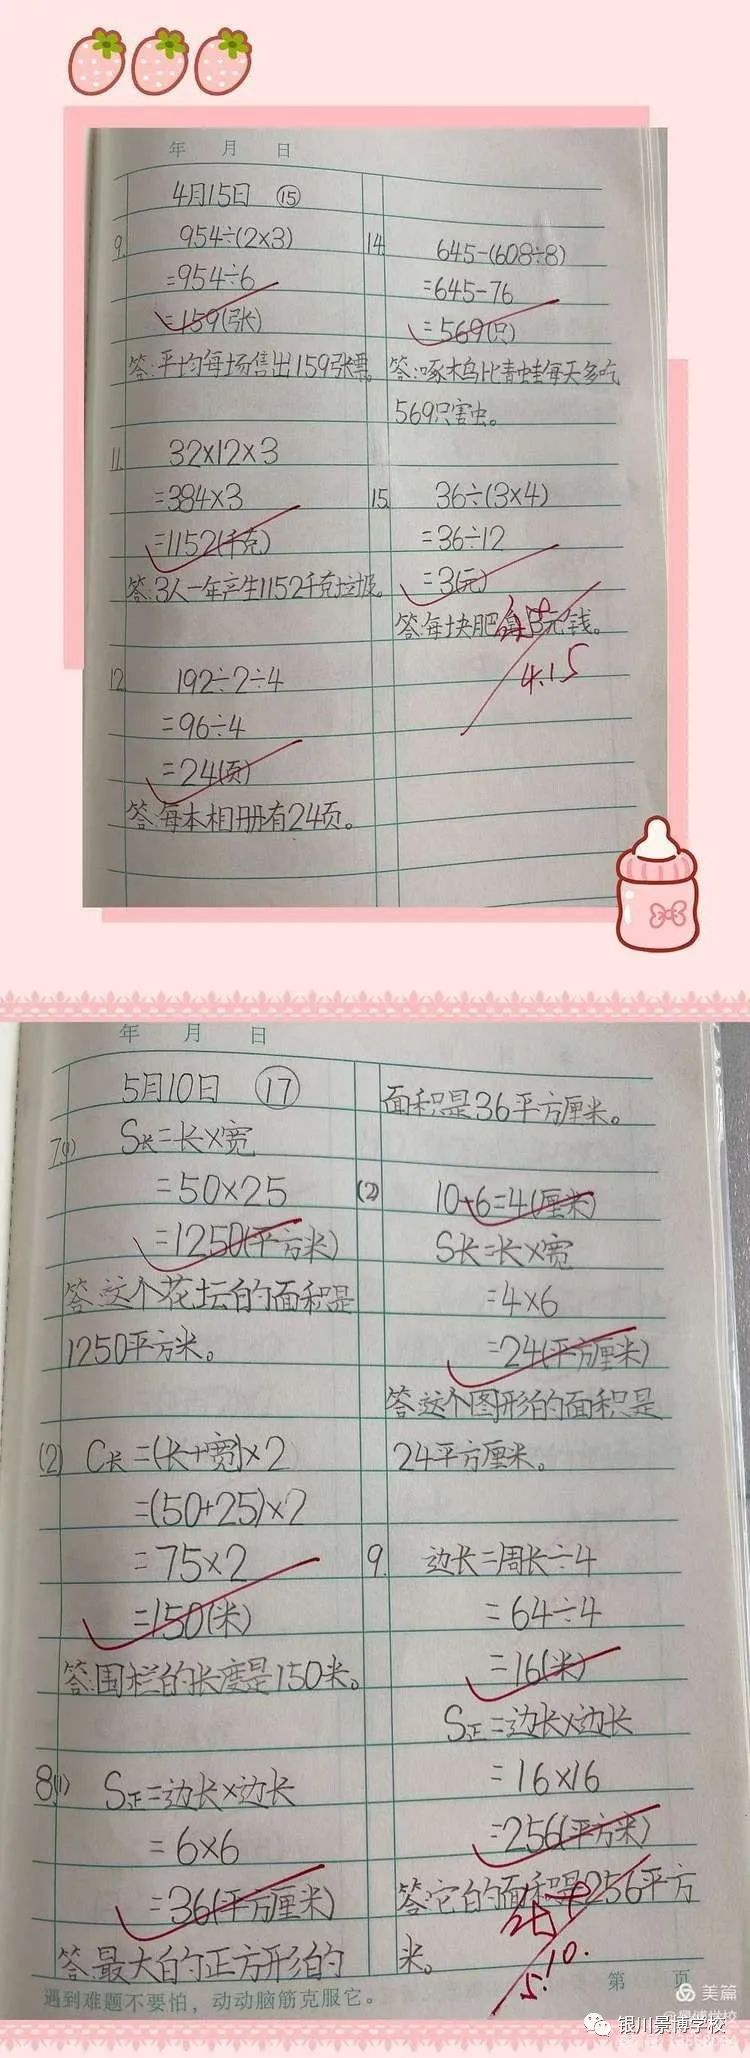 年 月 日
4月15日 ⑮
9. 954÷(2×3)
=954÷6
=159(张)
答:平均每场售出159张票。
11. 32×12×3
=384×3
=1152(千克)
答:3人一年产生1152千克垃圾。
12. 192÷2÷4
=96÷4
=24(页)
答:每本相册有24页。
14. 645-(608÷8)
=645-76
=569(只)
答:啄木鸟比青蛙每天多吃
569只害虫。
15. 36÷(3×4)
=36÷12
=3(元)
答:每块肥皂3元钱。
4.15
年 月 日
5月10日 ⑰
7(1) S长=长×宽
=50×25
=1250(平方米)
答:这个花坛的面积是
1250平方米。
(2) C长=(长+宽)×2
=(50+25)×2
=75×2
=150(米)
答:围栏的长度是150米。
8(1) S正=边长×边长
=6×6
=36(平方厘米)
答:最大的正方形的
面积是36平方厘米。
(2) 10-6=4(厘米)
S长=长×宽
=4×6
=24(平方厘米)
答:这个图形的面积是
24平方厘米。
9. 边长=周长÷4
=64÷4
=16(米)
S正=边长×边长
=16×16
=256(平方米)
答:它的面积是256平方
米。
5.10.
遇到难题不要怕，动动脑筋克服它。
第 页
美篇
银川景博学校